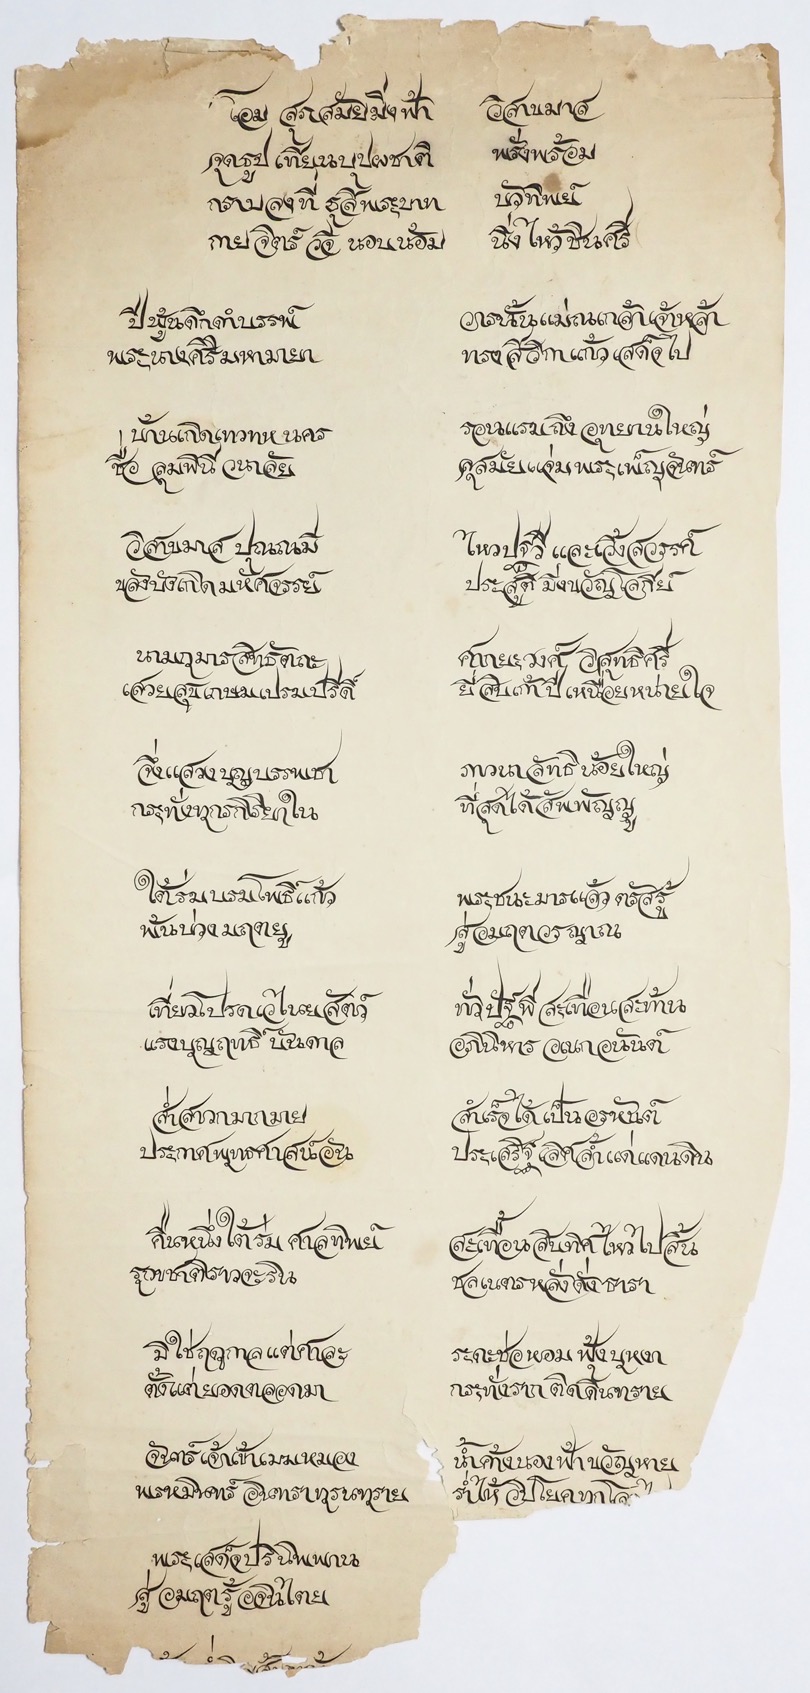 โอม สุภสมัยมิ่งฟ้า วิสาขมาส
จุดธูป เทียนบุปผชาติ พรั่งพร้อม
กราบลงที่ ธุลีพระบาท บัวทิพย์
กาย จิตร์ วจี นอบน้อม นิ่งไหว้ชินศรี
ปีพู้นดึกดำบรรพ์ วารนั้นแม่ณเกล้าเจ้าหล้า
พระนางศิริมหามายา ทรง สีวิกาแก้วเสด็จไป
บ้านเกิดเทวทหนคร รอนแรมถึง อุทยานใหญ่
ชื่อ ลุมพินี วนาลัย ศุสมัยแจ่ม พระเพ็ญจันทร์
วิสาขมาส ปุณณมี ไหวปฐวี และเวิ้งสวรรค์
ขลังบังเกิดมหัศจรรย์ ประสูติ มิ่งขวัญโลกีย์
นามกุมารสิทธัตถะ ศากยะวงศ์ วิสุทธิศรี
เสวยสุขเกษมเปรมปรีดิ์ ยี่สิบเก้าปีเหนื่อยหน่ายใจ
จึ่งแสวงบุญบรรพชา ภาวนาลัทธิน้อยใหญ่
กระทั่งทุกรกิริยาใน ที่สุดได้สัพพัญญู
ใต้ร่มบรมโพธิ์แก้ว พระชนะมารแล้ว ตรัสรู้
พ้นบ่วงมฤตยู สู่อมฤตวรญาณ
เที่ยวโปรดเวไนยสัตว์ ทั่วปัฐพี สะเทื่อนสะท้าน
แรงบุญฤทธิ์บันดาล อภินิหาร อเนกอนันต์
ส่ำสาวกมากมาย สำเร็จได้เป็นอรหันต์
ประกาศพุทธศาสน์อัน ประเสริฐเลิศล้ำแด่แดนดิน
คืนหนึ่งใต้ร่ม ศาลทิพย์ สะเทื้อนสิบทิศไหวไปสิ้น
รุกขชาติราวจะริน ชลเนตรหลั่งดั่งธารา
มิใช่ฤดูกาลแต่ศาละ ระดะช่อหอมฟุ้งบุหงา
ตั้งแต่ยอดตลอดมา กระทั่งรากติดดินทราย
จันทร์เจ้าเข้าเมฆหมอง น้ำค้างนองฟ้าขวัญหาย
พรหมินทร์ อินทราทุรนทุราย ร่ำไห้ วิปโยค
พระเสด็จปรินิพพาน
สู่ อมฤตรู้อจินไตย